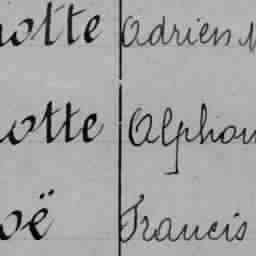 otte Adrien
otte Alphon
oë Francis